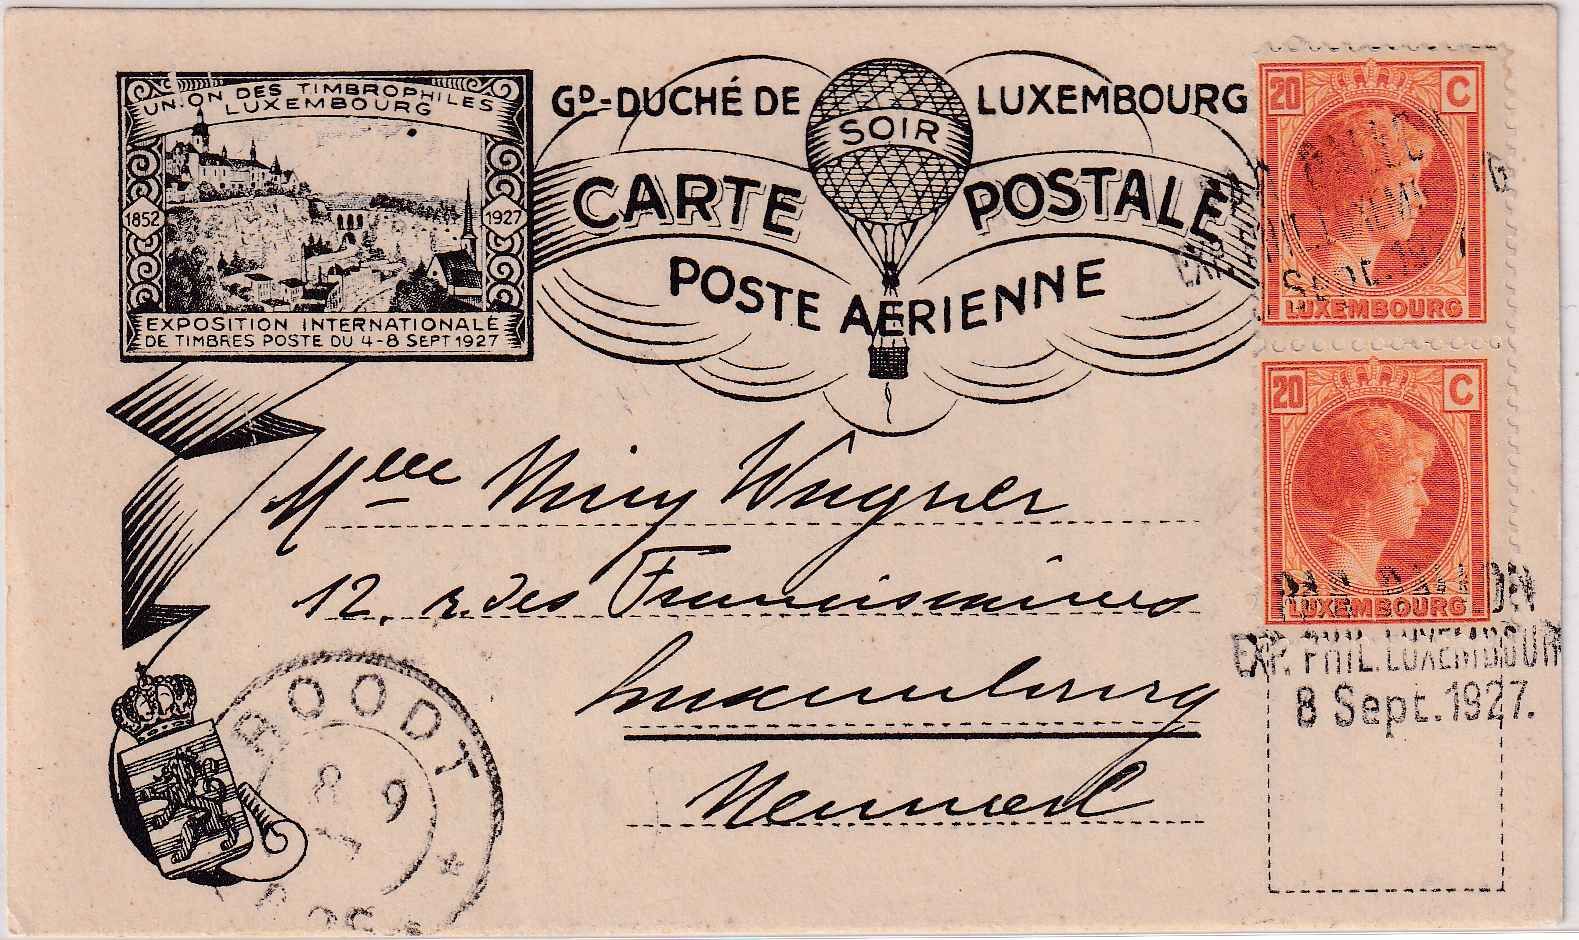 UNION DES TIMBROPHILES
LUXEMBOURG
1852
1927
EXPOSITION INTERNATIONALE
DE TIMBRES POSTE DU 4-8 SEPT 1927
GD-DUCHÉ DE LUXEMBOURG
SOIR
CARTE POSTALE
POSTE AÉRIENNE
20 C
Sept. 19
LUXEMBOURG
20 C
LUXEMBOURG
PAR BALLON
EXP. PHIL. LUXEMBOURG
8 Sept. 1927.
Mlle Wagner
12, r. des Franciscaines
Luxembourg
ROODT
8 9
*